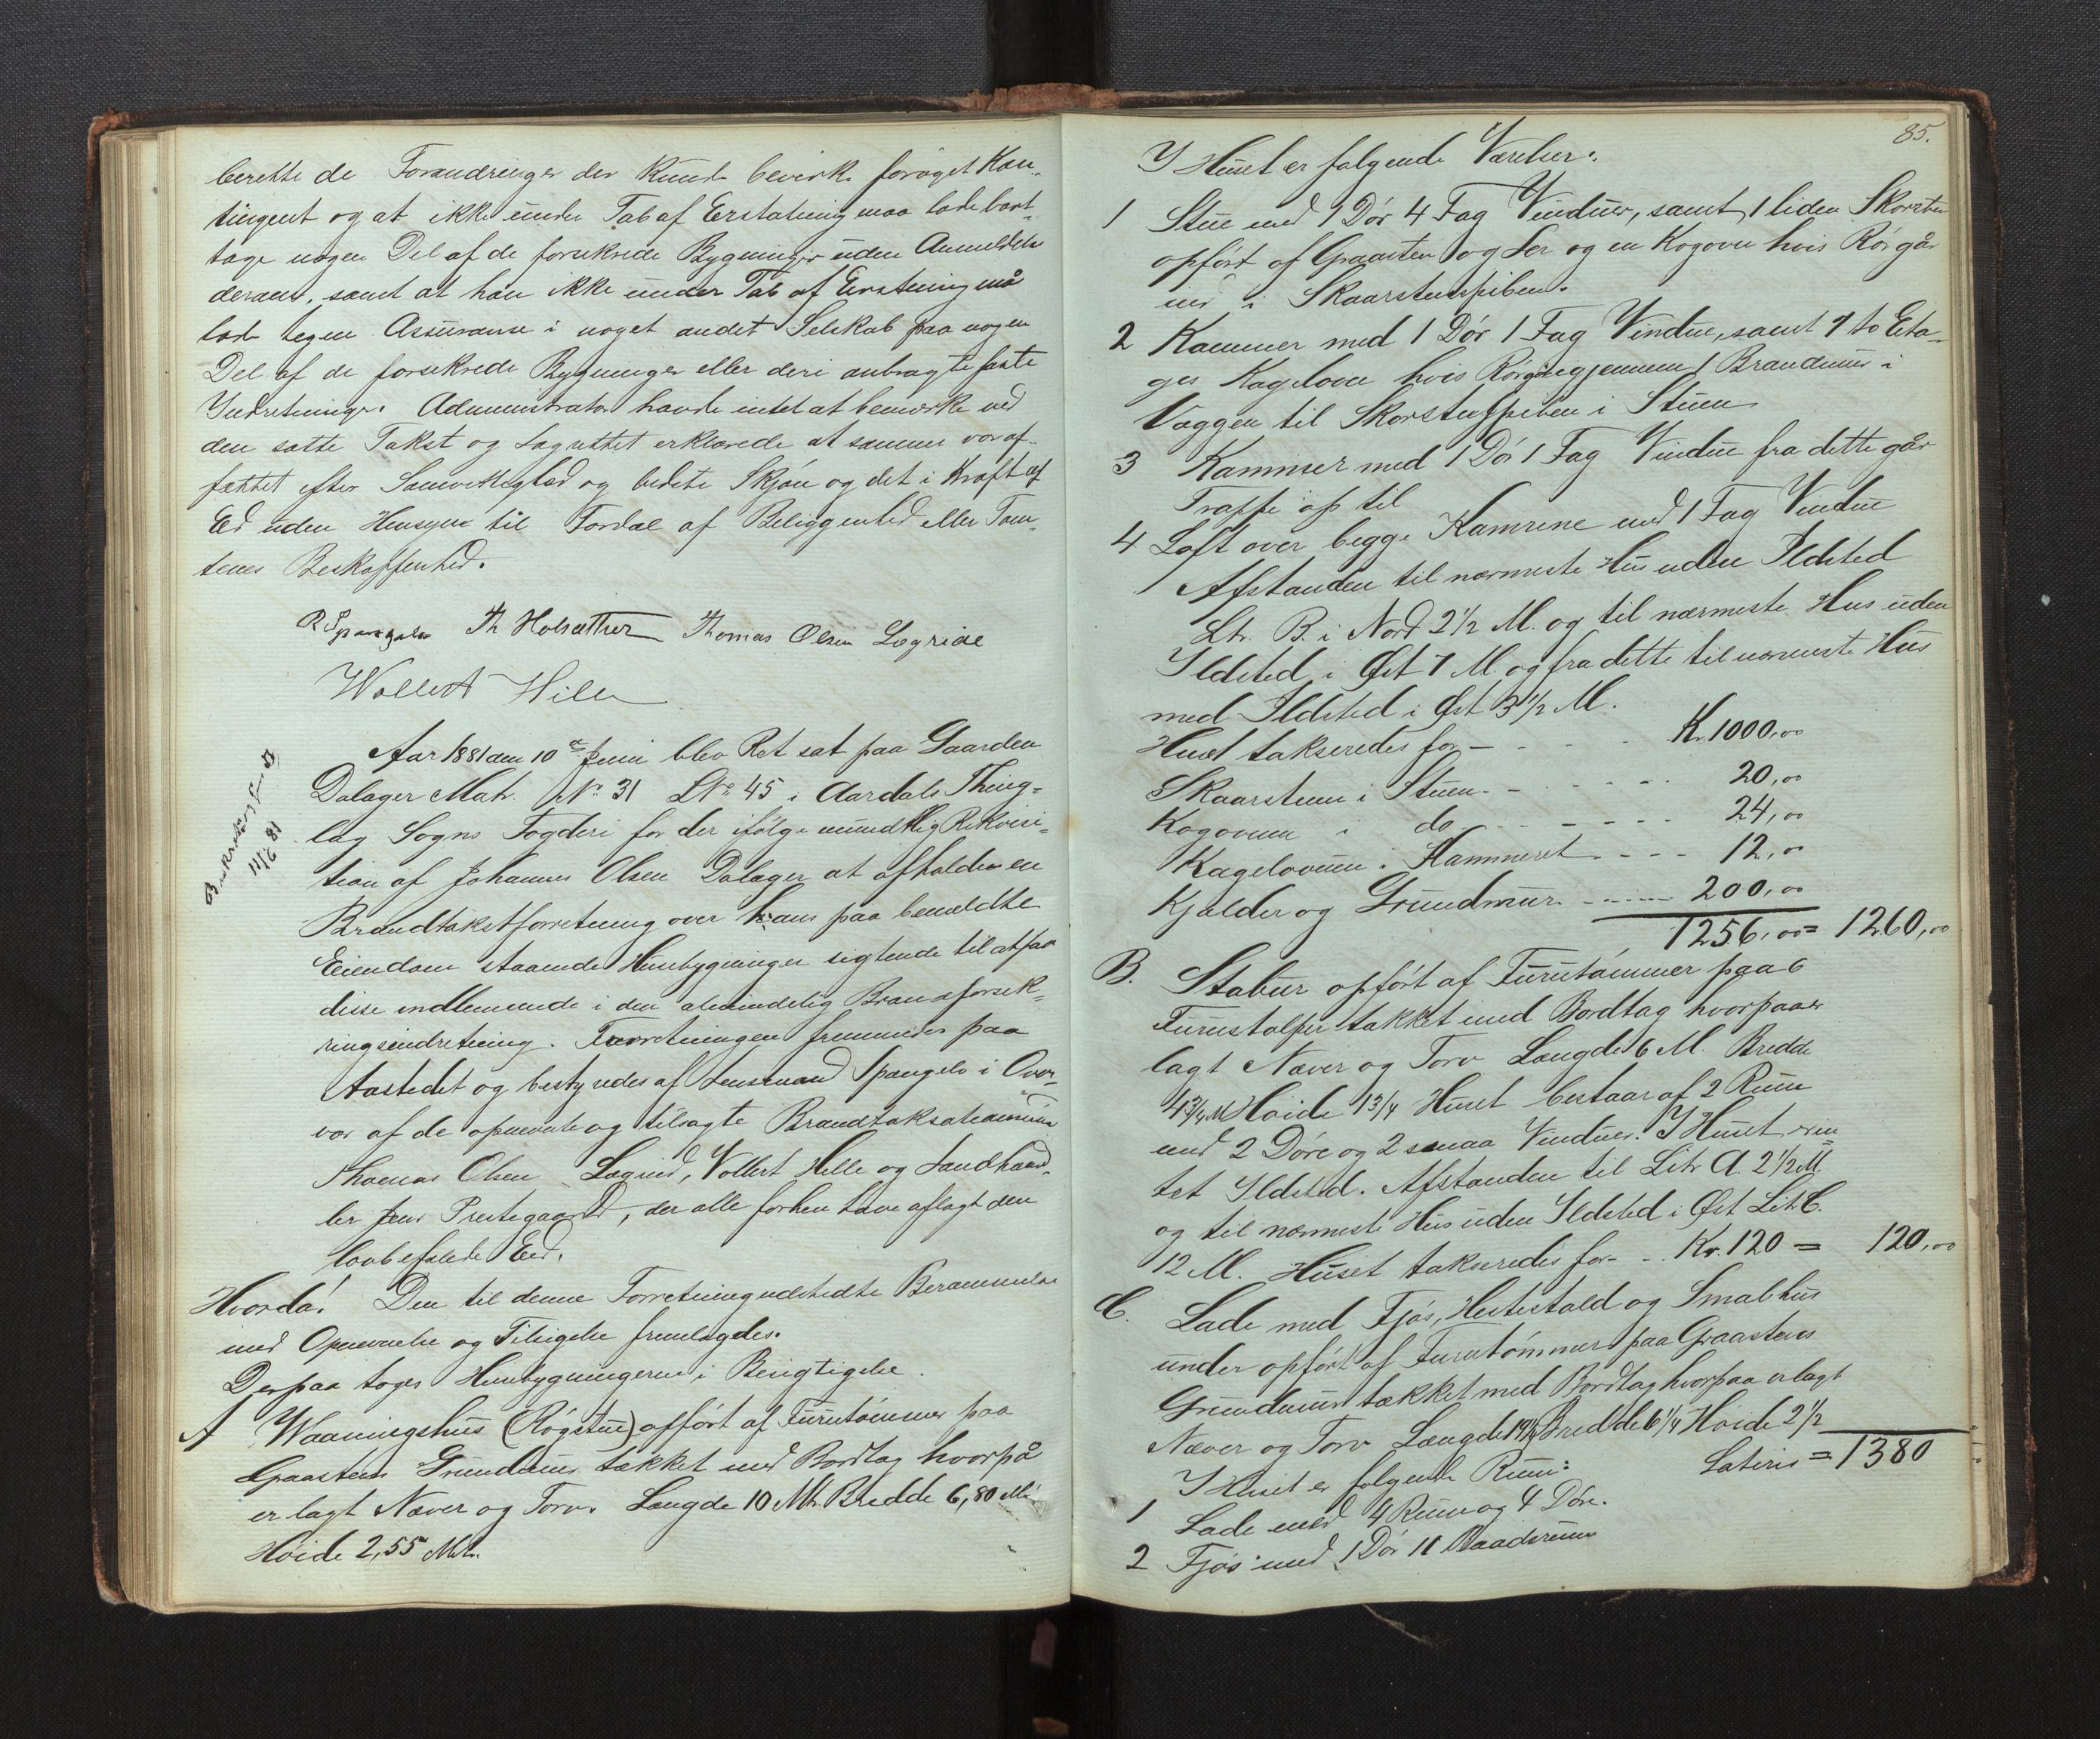 berette de Forandringer der kunde bevirke forøget Kon-
tingent og at ikke under Tab af Erstatning maa lade bort-
tage nogen Del af de forsikrede Bygninger uden Anmeldelse
deraf, samt at han ikke under Tab af Erstatning må
lade tegne Assurance i noget andet Selskab paa nogen
Del af de forsikrede Bygninger eller deri anbragte faste
Indretninger. Administrator havde intet at bemærke ved
den satte Takst og Lagrettet erklærede at samme var af-
fattet efter Samvittighed og bedste Skjøn og det i Kraft af
Ed uden Hensyn til Fordel af Beliggenhed eller Tom-
tens Beskaffenhed.
R Spangelo Th Holsæther Thomas Olsen Lægride
Wollert Hille
Aar 1881 den 10de Juni blev Ret sat paa Gaarden
Dalager Matr. No 31 LNo 45 i Aardals Thing-
lag Sogns Fogderi for der ifølge mundtlig Rekvisi-
tion af Johannes Olsen Dalager at afholde en
Brandtakstforretning over hans paa bemeldte
Eiendom staaende Husbygninger sigtende til at faa
disse indlemmede i den almindelig Brandforsik-
ringsindretning. Forretningen fremmedes paa
Aastedet og bestyredes af Lensmand Spangelo i Over-
vær af de opnevnte og tilsagte Brandtaksationsmænd
Thomas Olsen Lægrid, Vollert Hille og Landhand-
ler Jens Prestegaard, der alle forhen have aflagt den
lovbefalede Ed.
Hvorda! Den til denne Forretning udstedte Berammelse
med Opnevnelse og Tilsigelse fremlagdes.
Derpaa toges Husbygningerne i Besigtigelse.
A Waaningshus (Røgstue) opført af Furutømmer paa
Graastens Grundmur tækket med Bordtag hvorpå
er lagt Næver og Torv. Længde 10 Mtr. Bredde 6,80 Mtr
Høide 2,55 Mtr.
11/6 81
85.
I Huset er følgende Værelser:
1 Stue med 1 Dør 4 Fag Vinduer, samt 1 liden Skorsten
opført af Graasten og Ler og en Kogovn hvis Rør går
ind i Skaarstenspiben.
2 Kammer med 1 Dør 1 Fag Vindue, samt 1 to Eta-
ges Kagelovn hvis Rør går igjennem 1 Brandmur i
Væggen til Skorstenspiben i Stuen
3 Kammer med 1 Dør 1 Fag Vindue fra dette går
Trappe op til
4 Loft over begge Kamrene med 1 Fag Vindue
Afstanden til nærmeste Hus uden Ildsted
Ltr. B. i Nord 2 1/2 M. og til nærmeste Hus uden
Ildsted i Øst 7 M og fra dette til nærmeste Hus
med Ildsted i Øst 3 1/2 M.
Huset takseredes for - - - - Kr. 1000,00
Skaarstenen i Stuen - - - - 20,00
Kogovnen i do - - - - - 24,00
Kagelovnen i Kammeret - - - - 12,00
Kjælder og Grundmur - - - - 200,00
1256,00 = 1260,00
B. Stabur opført af Furutømmer paa 6
Furustolper tækket med Bordtag hvorpaa er
lagt Næver og Torv Længde 6 M. Bredde
4 3/4 M Høide 1 3/4 Huset bestaar af 2 Rum
med 2 Døre og 2 smaa Vinduer. I Huset er in-
tet Ildsted. Afstanden til Litr A. 2 1/2 M.
og til nærmeste Hus uden Ildsted i Øst Litr C.
12 M. Huset takseredes for - - Kr. 120 = 120,00
C. Lade med Fjøs, Hestestald og Smalehus
under opført af Furutømmer paa Graastens
Grundmur tækket med Bordtag hvorpaa er lagt
Næver og Torv Længde 19 1/2 Bredde 6 1/4 Høide 2 1/2
I Huset er følgende Rum: Lateris = 1380
1 Lade med 4 Rum og 4 Døre.
2 Fjøs med 1 Dør 11 Baadsrum